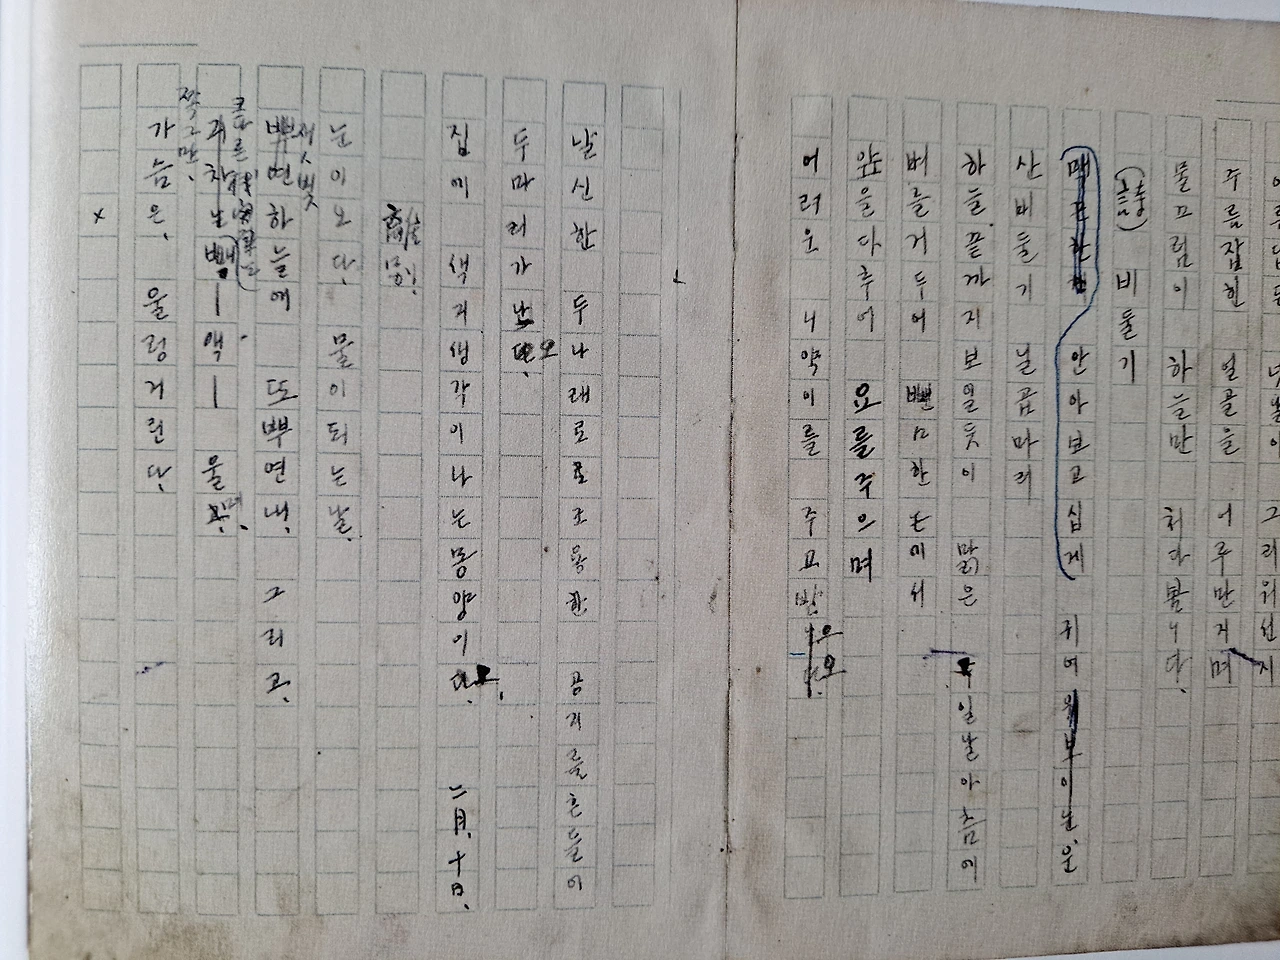 주름잡힌 얼골을 어루만지며
물끄럼이 하늘만 처다봄니다.
(詩) 비둘기
안아보고십게 귀여운
산비둘기 닐곱마리
하늘끝까지 보일듯이 맑은 주일날아츰에
벼를거두어 뺀ㅁ한논에서
앞을다투어 요를주으며
어려운 니약이를 주고받으오
날신한 두나래로 조용한 공기를흔들어
두마리가 나오.
집에 색기생각이나는몽양이오. 二月、十日、
離別.
눈이오다, 물이되는날.
재ㅅ빛하늘에 또뿌연내, 그리고,
크다른 機關車는 빼—액— 울며,
쪼그만,
가슴은, 울렁거린다.
×